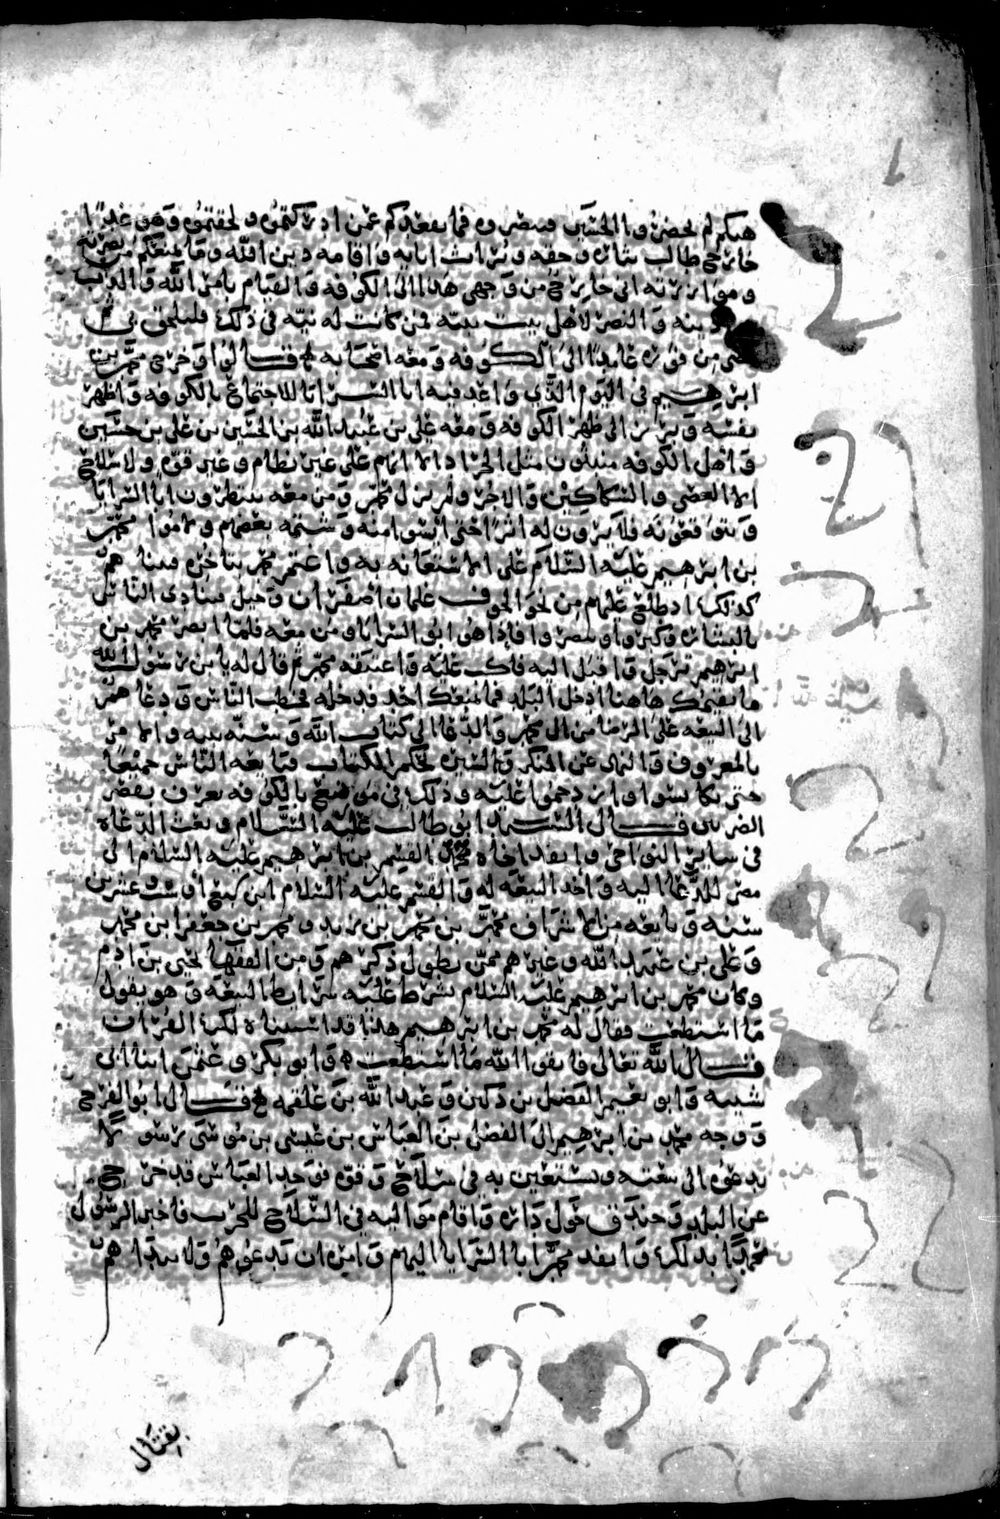 هبكم لم تحضروا الحسين فتنصروه فما يقعدكم عمن ادركتموه ولحقتموه وهو غدًا
خارج طالب بثاره وحقه وتراث ابايه واقامه دين الله وما يمنعكم من نصرته
وموازرته اني خارج من وجهي هذا الى الكوفه والقيام بامر الله والذب
دينه والنصر لاهل بيت نبيه فمن كانت له نيه في ذلك فليلحق بي ثم
مضى من فوره عامدًا الى الكوفه ومعه اصحابه قالوا وخرج محمد بن
ابرهيم في اليوم الذي واعد فيه ابا السرايا للاجتماع بالكوفه واظهر
نفسه وبرز الى ظهر الكوفه ومعه علي بن عبيد الله بن الحسين بن علي بن حسين
واهل الكوفه منبثون مثل الجراد الا انهم على غير نظام وغير قوه ولا سلاح
الا العصي والسكاكين والاجر ولم يزل محمد ومن معه ينتظرون ابا السرايا
ويتوقعونه فلا يرون له اثرًا حتى ايسوا منه وشتمه بعضهم ولاموا محمد
بن ابرهيم عليه السلام على الاستعانه به واغتم محمد بتاخره فبينا هم
كذلك اذ طلع عليهم من نحو الجوف علمان اصفران وخيل فتنادى الناس
بالبشاره وكبروا ونصروا فاذا هو ابو السرايا ومن معه فلما ابصر محمد بن
ابرهيم ترجل واقبل اليه فانكب عليه واعتنقه محمد ثم قال له يا بن رسول الله
ما يقيمك هاهنا ادخل البلد فما يمنعك احد فدخله فخطب الناس ودعاهم
الى البيعه على الرضا من ال محمد والدعا الى كتاب الله وسنه نبيه والامر
بالمعروف والنهي عن المنكر والسيره بحكم الكتاب فبايعه الناس جميعًا
حتى تكابسوا وازدحموا عليه وذلك في موضع بالكوفه يعرف بقصر
الضرتين قال السيد ابو طالب عليه السلام وبعث الدعاه
في ساير النواحي وانفذ اخاه القسم بن ابرهيم عليه السلام الى
مصر للدعا اليه واخذ البيعه له وللقسم عليه السلام
سنه وبايعه من الاشراف محمد بن محمد بن زيد ومحمد بن جعفر ابن محمد
وعلي بن عبيد الله وغيرهم ممن يطول ذكرهم ومن الفقها يحيى بن ادم
وكان محمد بن ابرهيم عليه السلام يشرط عليه شرايط البيعه وهو يقول
ما استطعت فقال له محمد بن ابرهيم هذا قد استثناه لك القران
قال الله تعالى فاتقوا الله ما استطعتم وابو بكر وعثمن ابنا ابي
شيبه وابو نعيم الفضل بن دكين وعبد الله بن علقمه قال ابو الفرج
ووجه محمد بن ابرهيم الى الفضل بن العباس بن عيسى بن موسى رسولا
يدعوه الى بيعته ويستعين به في سلاح وقوه فوجد العباس قد خرج
عن البلد وخندق حول داره واقام مواليه في السلاح للحرب فاخبر الرسول
محمدًا بذلك وانفذ محمد ابا السرايا اليهم وامره ان يدعوهم ولا يبداهم
بقتال